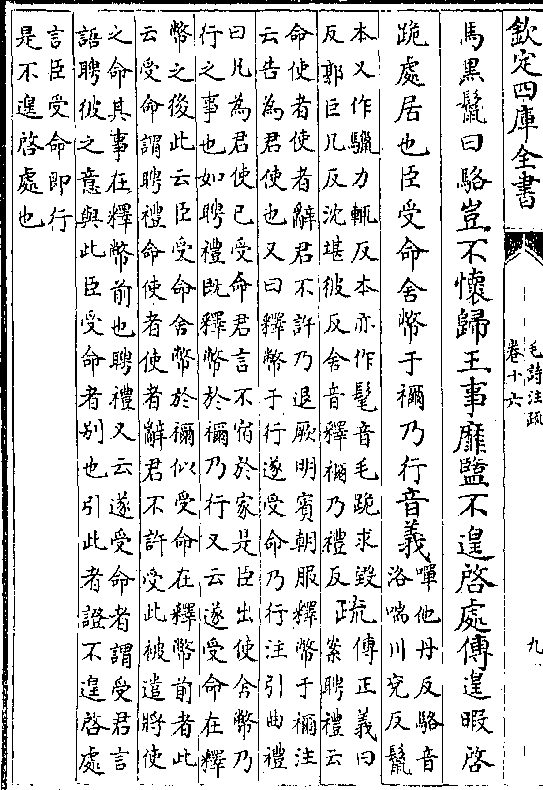 欽定四庫全書
毛詩注疏
卷十六
九
馬黒鬛曰駱豈不懷歸王事靡盬不遑啓處傳遑暇啓
跪處居也臣受命舍幣于禰乃行音義嘽他丹反駱音
洛喘川兖反鬛
本又作䮫力輒反本亦作髦音毛跪求毁
反郭巨几反沈堪彼反舍音釋禰乃禮反
疏傳正義曰
案聘禮云
命使者使者辭君不許乃退厥明賓朝服釋幣于禰注
云告為君使也又曰釋幣于行遂受命乃行注引曲禮
曰凡為君使已受命君言不宿於家是臣出使舍幣乃
行之事也如聘禮既釋幣於禰乃行又云遂受命在釋
幣之後此云臣受命舍幣於禰似受命在釋幣前者此
云受命謂聘禮命使者使者辭君不許受此被遣將使
之命其事在釋幣前也聘禮又云遂受命者謂受君言
語聘彼之意與此臣受命者别也引此者證不遑啓處
言臣受命即行
是不遑啓處也